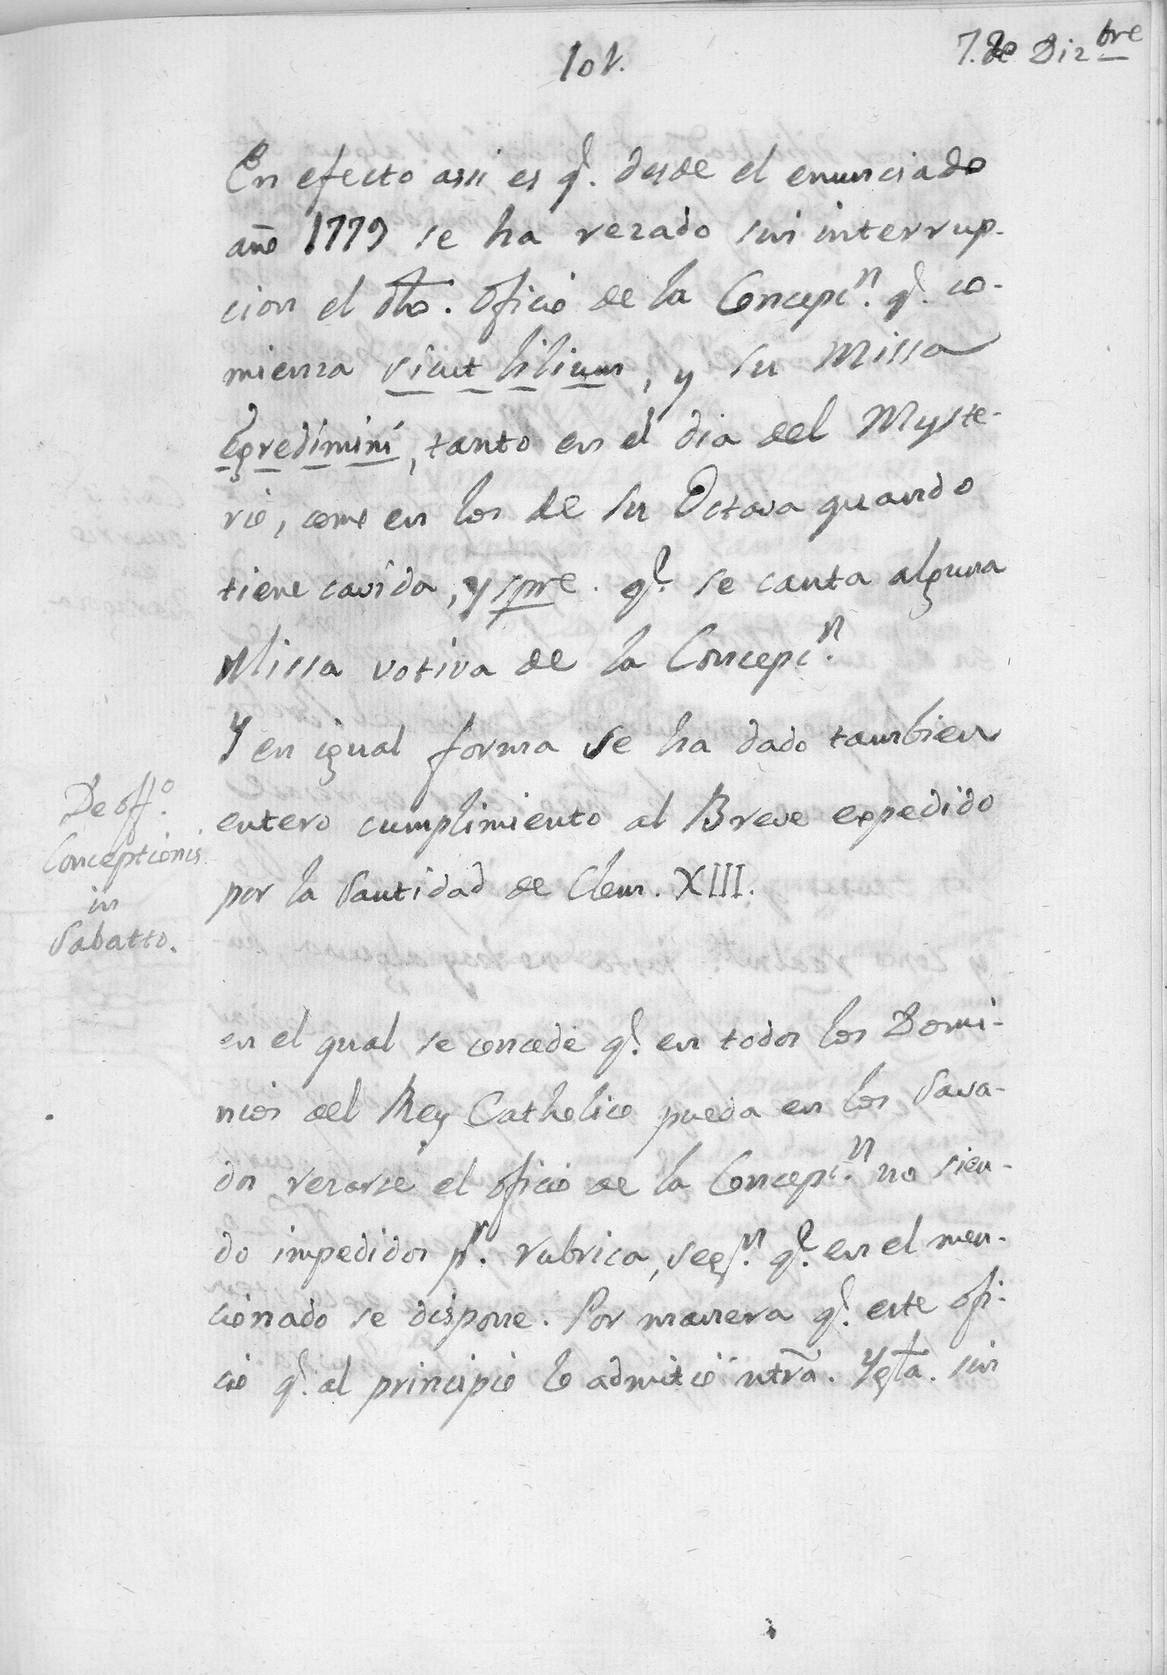 101.
7. de Diz<sup>bre</sup>
En efecto assi es q.^ desde el enunciado
año 1779 se ha rezado sin interrup-
cion el dho. Oficio de la Concepc.<sup>n</sup> q.^ co-
mienza Sicut lilium, y su Missa
Egredimini, tanto en el dia del Myste-
rio, como en los de su Octava quando
tiene cavida, y spre. q.^ se canta alguna
Missa votiva de la Concepc.<sup>n</sup>
Y en igual forma se ha dado tambien
entero cumplimiento al Breve expedido
por la Santidad de Clem. XIII.
De off.<sup>o</sup>
Conceptionis
in
Sabatto.
en el qual se concede q.^ en todos los Domi-
nios del Rey Catholico pueda en los Sava-
dos rezarse el oficio de la Concepc.<sup>n</sup> no sien-
do impedidos p.<sup>r</sup> rubrica, seg.<sup>n</sup> q.^ en el men-
cionado se dispone. Por manera q.^ este ofi-
cio q.^ al principio lo admitió ntra. Ygla. sin